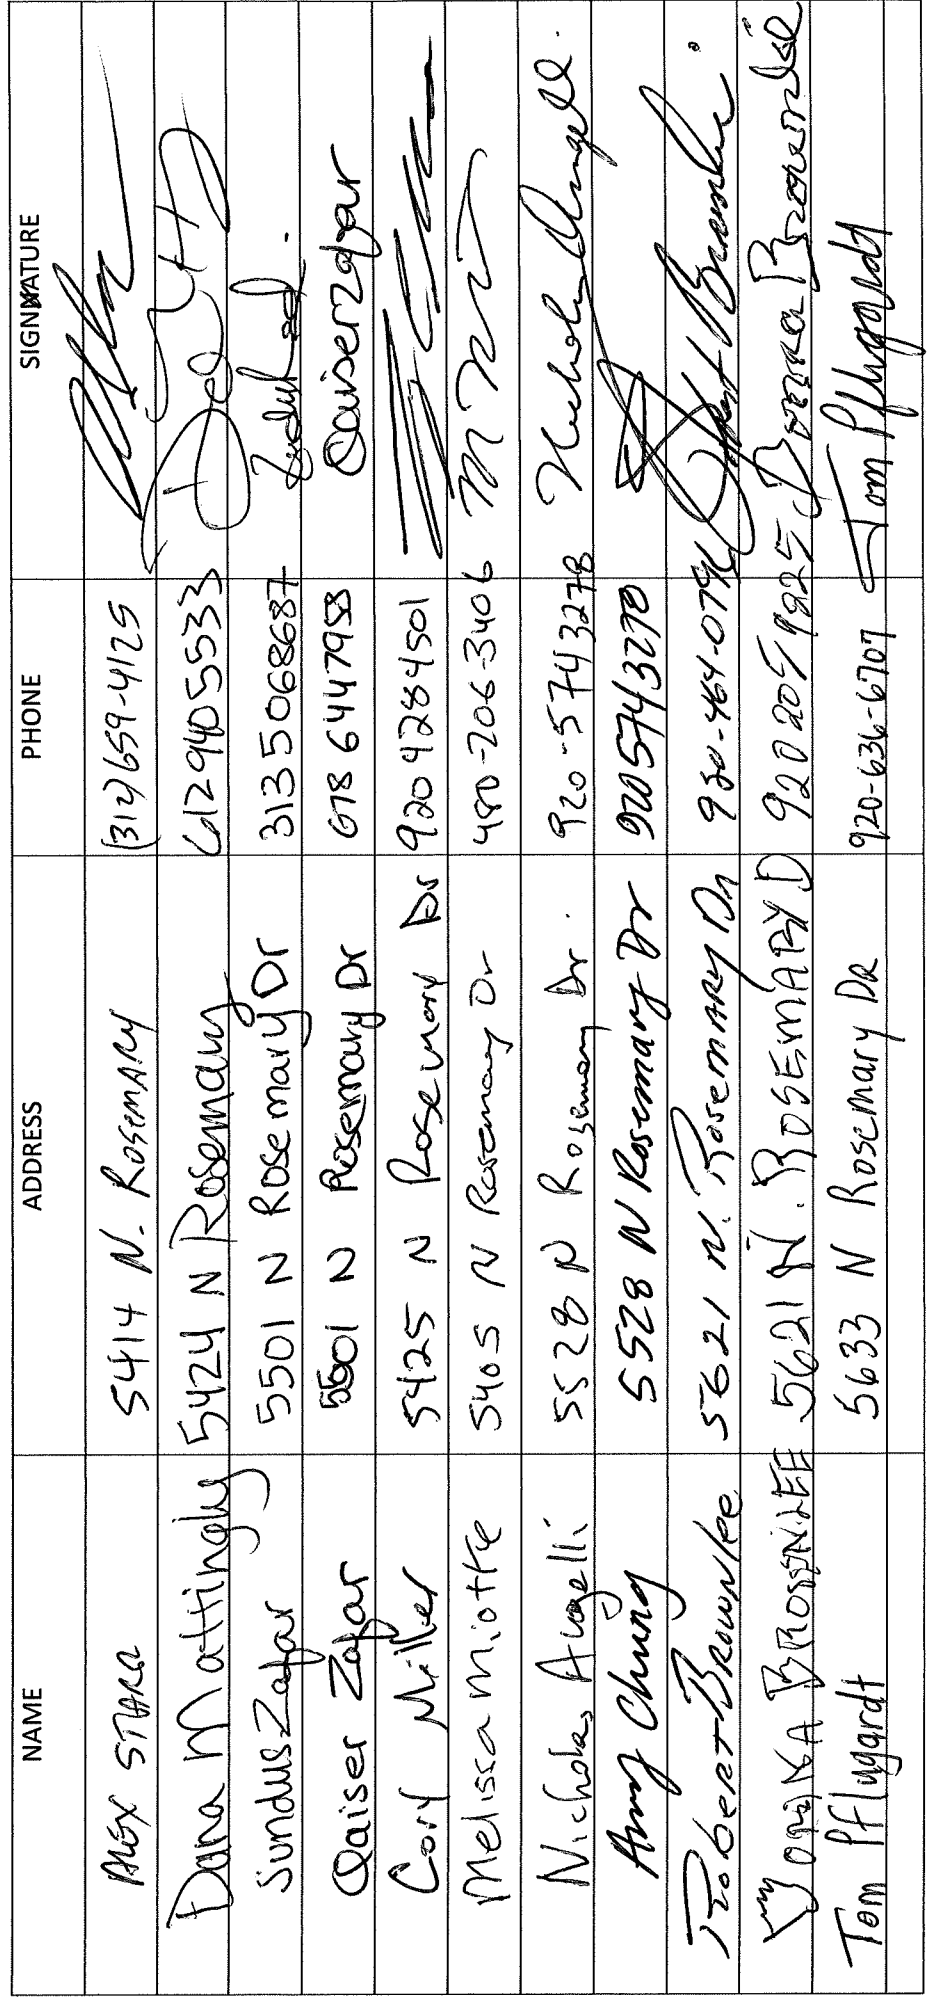 NAME ADDRESS PHONE SIGNATURE
ALEX STARR 5414 N. ROSEMARY (312) 659-4125
Dana Mattingly 5424 N Rosemary 6129405533
Sundus Zafar 5501 N Rosemary Dr 3135068687
Qaiser Zafar 5501 N Rosemary Dr 678 6447958 Qaiserzafar
Cory Miller 5425 N Rosemary Dr 9204284501
Melissa Miotke 5405 N Rosemary Dr 480-206-3406
Nicholas Angelli 5528 N Rosemary Dr. 920-5743278
Amy Chung 5528 N Rosemary Dr 9205743278
Robert Brownlee 5621 N. Rosemary Dr 920-464-0796 Robert Brownlee
BROWNLEE 5621 N. ROSEMARY D 920 205 9825 Brownlee
Tom Pflugardt 5633 N Rosemary DR 920-636-6707 Tom Pflugardt